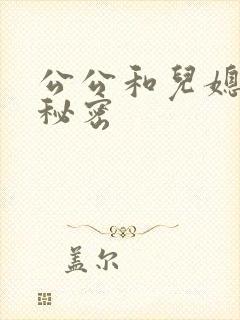 公公和兒媳
秘密
盖尔